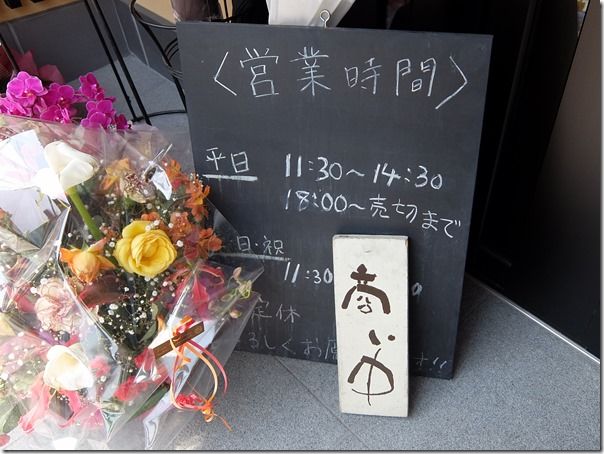 〈営業時間〉
平日 11:30～14:30
18:00～売切まで
日・祝
11:30
定休
しくお
!!
商い中